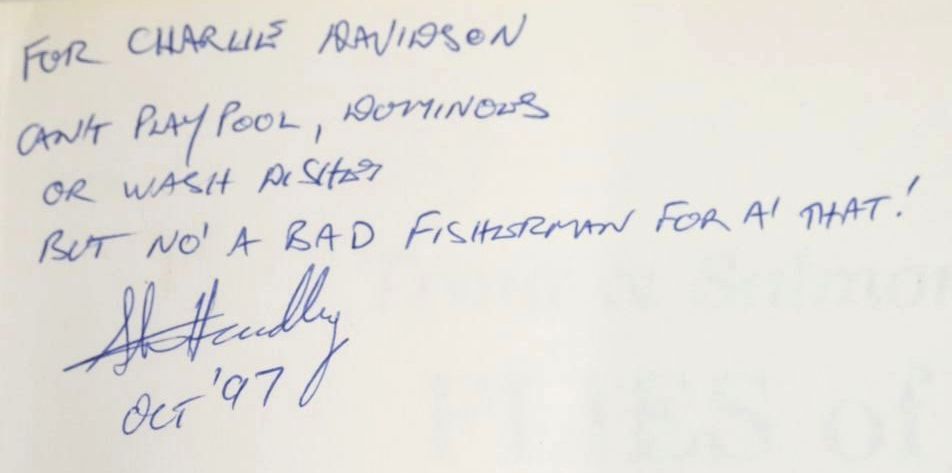 FOR CHARLIE DAVIDSON
CAN'T PLAY POOL, DOMINOES
OR WASH DISHES
BUT NO' A BAD FISHERMAN FOR A' THAT!
OCT '97
& Salmon
FLIES of